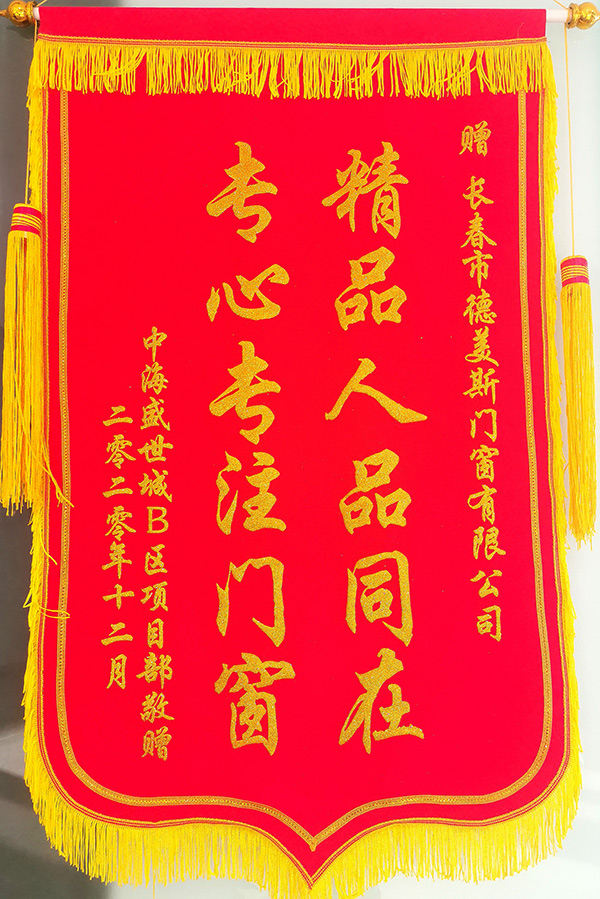 赠 长春市德美斯门窗有限公司
精品人品同在
专心专注门窗
中海盛世城B区项目部敬赠
二零二零年十二月